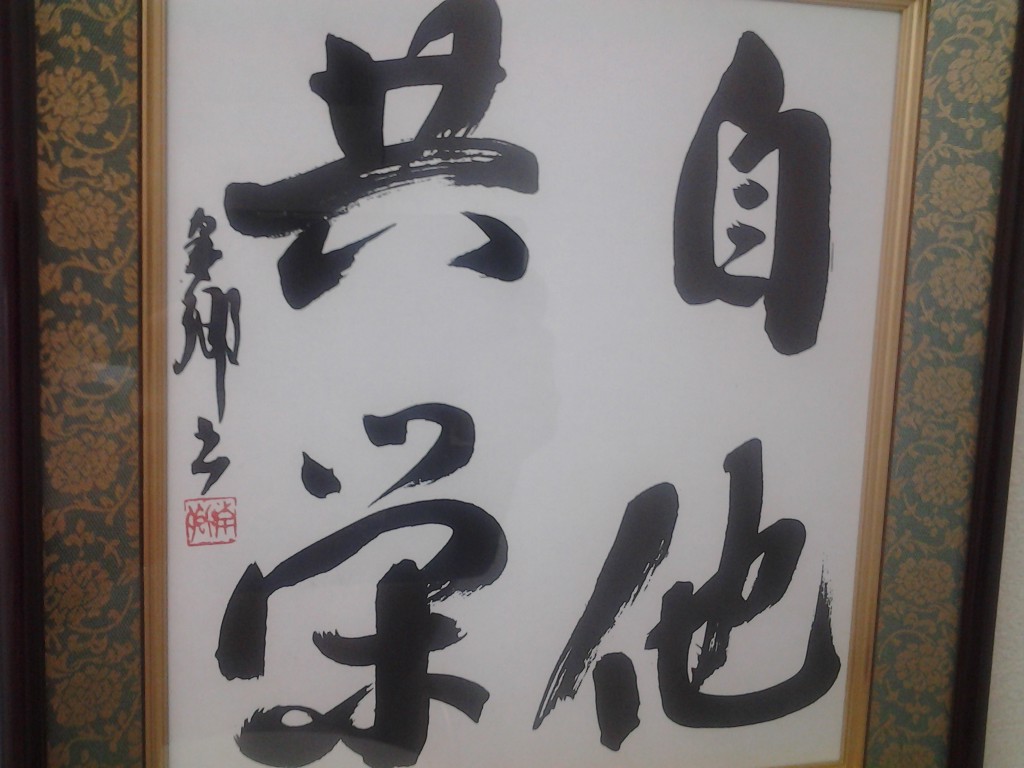 自他
共栄